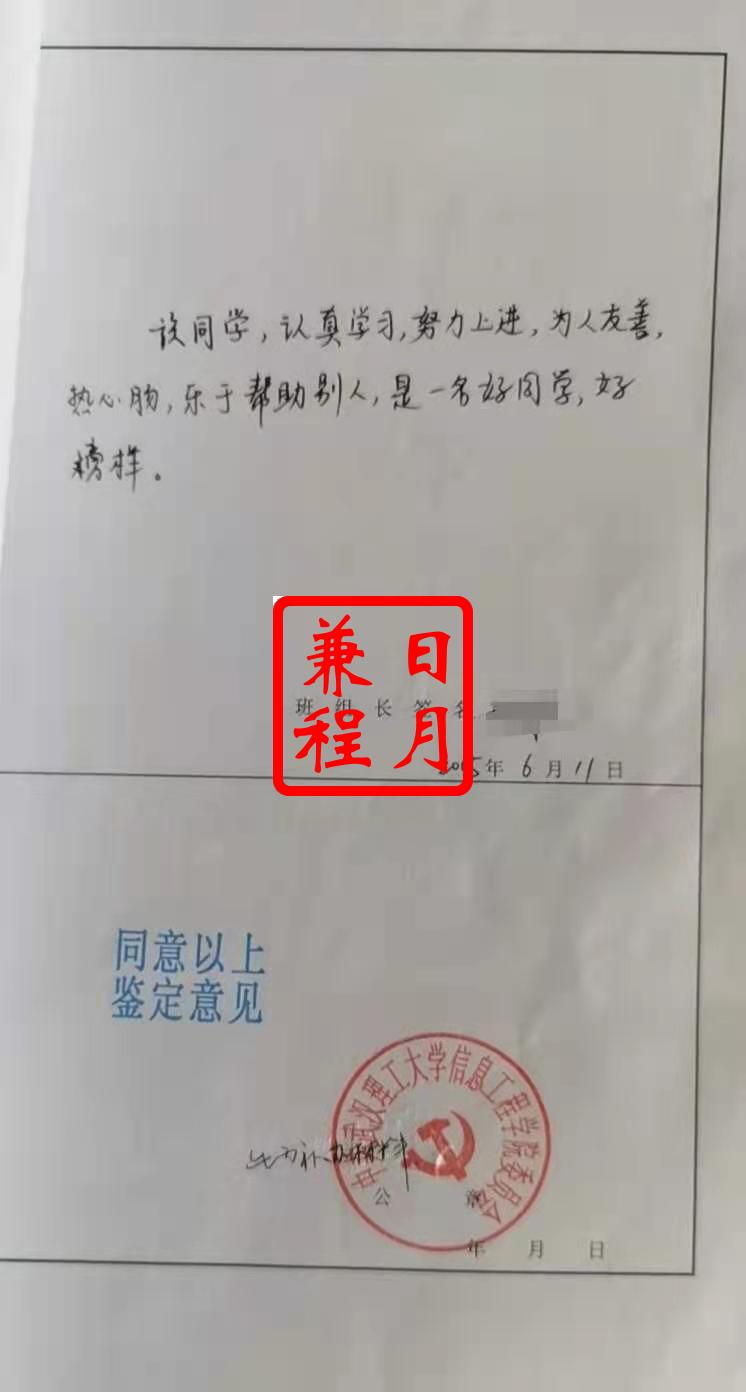 该同学，认真学习，努力上进，为人友善，
热心肠，乐于帮助别人，是一名好同学，好
榜样。
日月
兼程
班组长签名
2015年6月11日
同意以上
鉴定意见
武汉理工大学信息工程学院委员会
公 章
年 月 日